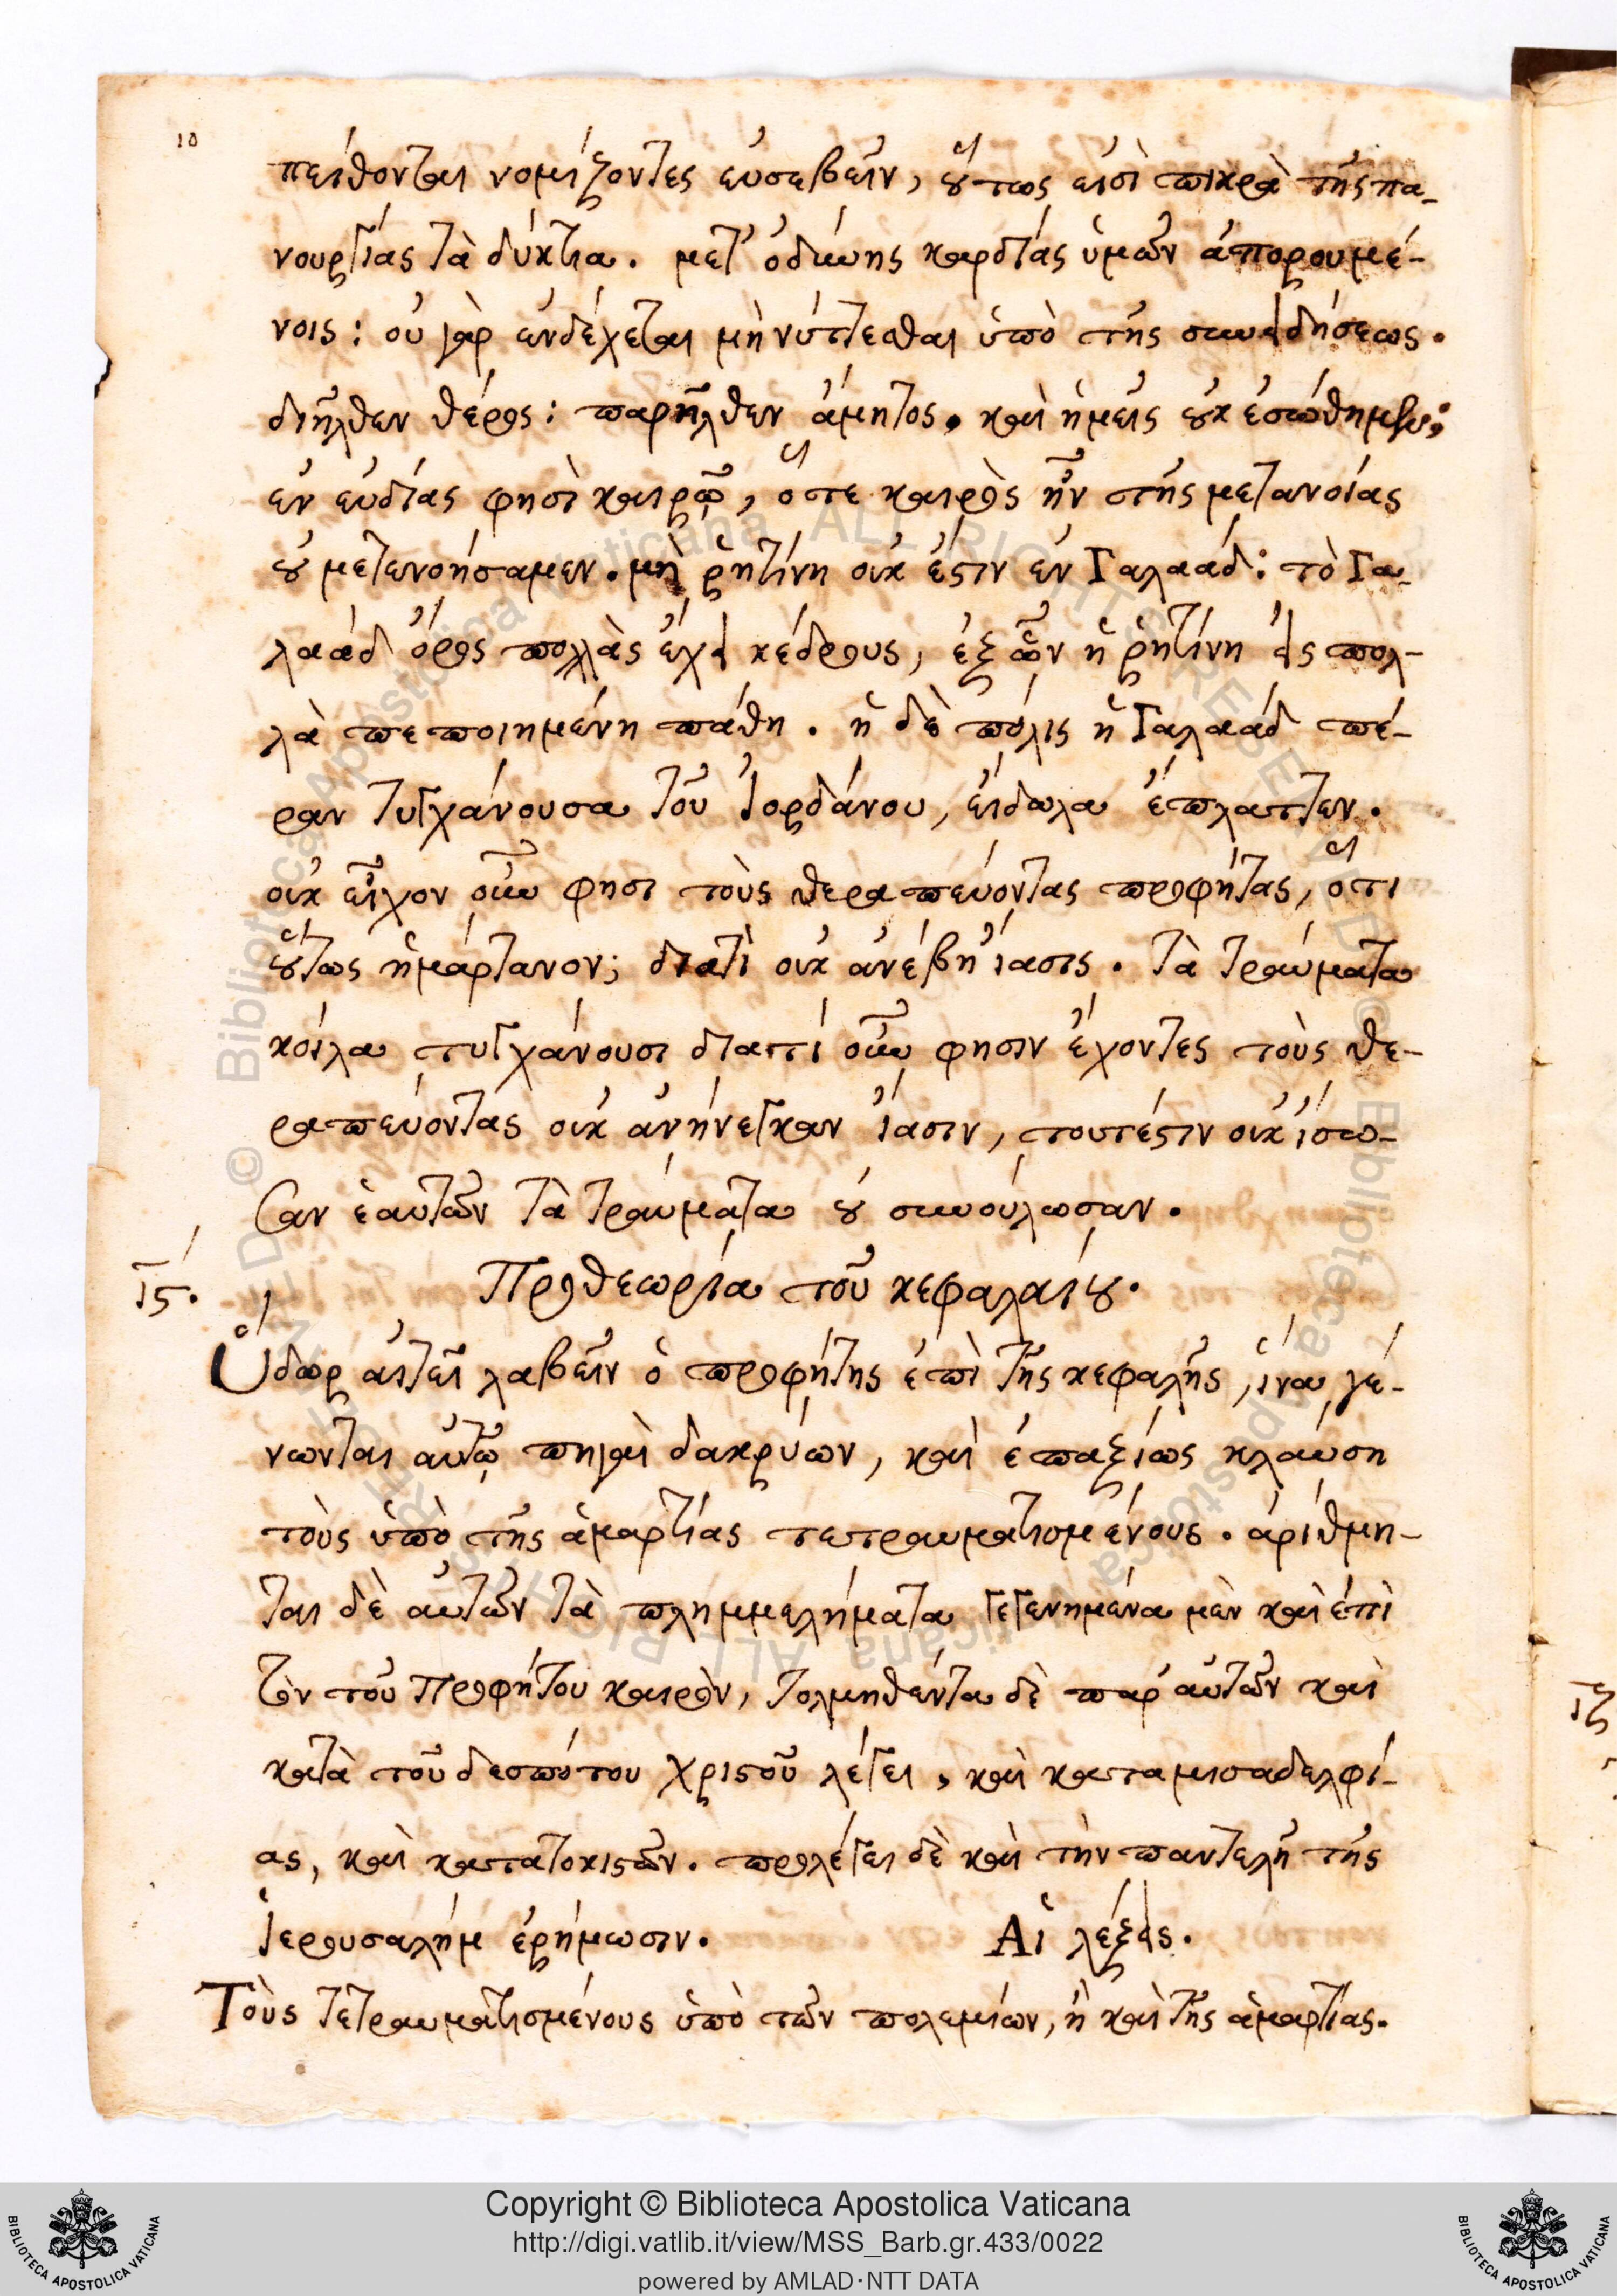 10
πείθονται νομίζοντες εὐσεβεῖν, οὕτως εἰσὶ πικρὰ τῆς πα-
νουργίας τὰ δύκτια. μετ' ὀδύνης καρδίας ὑμῶν ἀπορουμέ-
νοις: οὐ γὰρ ἐνδέχεται μὴ νύττεσθαι ὑπὸ τῆς συνειδήσεως.
διῆλθεν θέρος: παρῆλθεν ἄμητος. καὶ ἡμεῖς οὐκ ἐσώθημεν;
ἐν εὐδίας φησὶ καιρῷ, ὅτε καιρὸς ἦν τῆς μετανοίας
οὐ μετενοήσαμεν. μὴ ῥητίνη οὐκ ἔστιν ἐν Γαλαάδ: τὸ Γα-
λαάδ ὄρος πολλὰς ἔχει κέδρους, ἐξ ὧν ἡ ῥητίνη εἰς πολ-
λὰ πεποιημένη πάθη. ἡ δὲ πόλις ἡ Γαλαάδ πέ-
ραν τυγχάνουσα τοῦ Ἰορδάνου, εἴδωλα ἔπλαττεν.
οὐκ εἶχον οὖν φησι τοὺς θεραπεύοντας προφήτας, ὅτι
οὕτως ἡμάρτανον; διατὶ οὐκ ἀνέβη ἴασις. τὰ τραύματα
κοίλα τυγχάνουσι διατί οὖν φησιν ἔχοντες τοὺς θε-
ραπεύοντας οὐκ ἀνήνεγκαν ἴασιν, τουτέστιν οὐκ ἴσω-
σαν ἑαυτῶν τὰ τραύματα οὐ συνούλωσαν.
ις. Προθεωρία τοῦ κεφαλαίου.
Ὕδωρ αἰτεῖ λαβεῖν ὁ προφήτης ἐπὶ τῆς κεφαλῆς, ἵνα γέ-
νωνται αὐτῷ πηγαὶ δακρύων, καὶ ἐπαξίως κλαύση
τοὺς ὑπὸ τῆς ἁμαρτίας τετραυματισμένους. ἀρίθμη-
ται δὲ αὐτῶν τὰ πλημμελήματα γεγενημένα μὲν καὶ ἐπὶ
τὸν τοῦ Προφήτου καιρὸν, τολμηθέντα δὲ παρ' αὐτῶν καὶ
κατὰ τοῦ δεσπότου Χριστοῦ λέγει, καὶ κατα μισαδελφί-
ας, καὶ κατατοκιστῶν. προλέγει δὲ καὶ τὴν παντελῆ τῆς
Ἱερουσαλὴμ ἐρήμωσιν. Αἱ λέξεις.
Τοὺς τετραυματισμένους ὑπὸ τῶν πολεμίων, ἢ καὶ τῆς ἁμαρτίας.
Copyright © Biblioteca Apostolica Vaticana
http://digi.vatlib.it/view/MSS_Barb.gr.433/0022
powered by AMLAD·NTT DATA
BIBLIOTECA APOSTOLICA VATICANA
BIBLIOTECA APOSTOLICA VATICANA